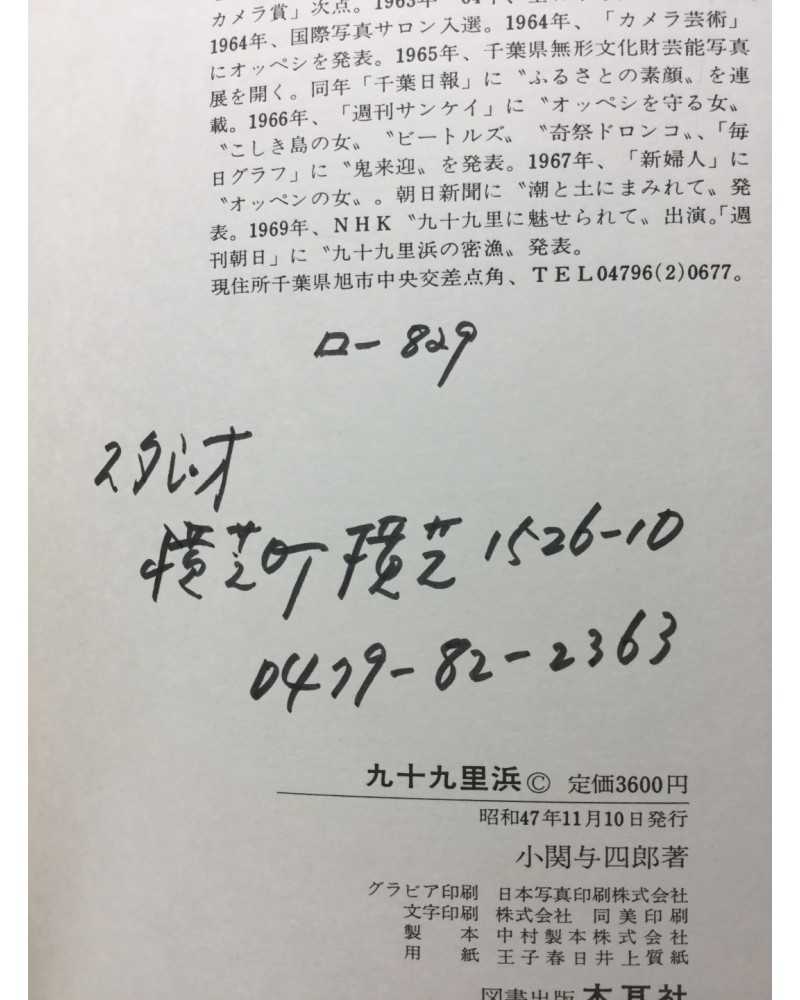 カメラ賞」次点。1963年
1964年、国際写真サロン入選。1964年、「カメラ芸術」
にオッペシを発表。1965年、千葉県無形文化財芸能写真
展を開く。同年「千葉日報」に〝ふるさとの素顔〟を連
載。1966年、「週刊サンケイ」に〝オッペシを守る女〟
〝こしき島の女〟〝ビートルズ〟〝奇祭ドロンコ〟、「毎
日グラフ」に〝鬼来迎〟を発表。1967年、「新婦人」に
〝オッペンの女〟。朝日新聞に〝潮と土にまみれて〟発
表。1969年、NHK〝九十九里に魅せられて〟出演。「週
刊朝日」に〝九十九里浜の密漁〟発表。
現住所千葉県旭市中央交差点角、TEL04796(2)0677。
ロー829
スタジオ
横芝町横芝1526-10
0479-82-2363
九十九里浜© 定価3600円
昭和47年11月10日発行
小関与四郎著
グラビア印刷 日本写真印刷株式会社
文字印刷 株式会社 同美印刷
製本 中村製本株式会社
用紙 王子春日井上質紙
図書出版 木耳社